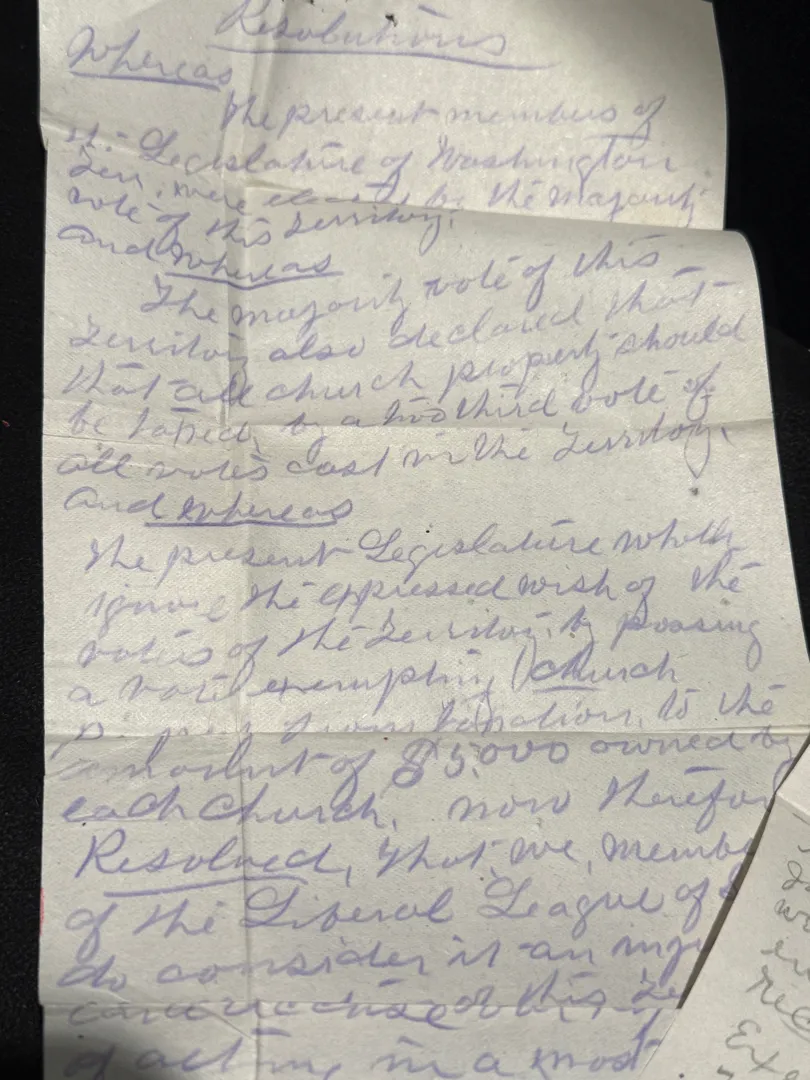 Resolutions
Whereas
The present members of
the Legislature of Washington
Ter, were elected by the majority
vote of this Territory.
and whereas
The majority vote of this
Territory also declared that
that all church property should
be taxed, by a two third vote of
all votes cast in the Territory,
and whereas
the present Legislature wholly
ignore the expressed wish of the
voters of the Territory, by passing
a vote exempting church
from taxation, to the
amount of $5,000 owned by
each church, now therefor
Resolved, that we, memb
of the Liberal League of S
do consider it an inju
of this Te
of acting in a most